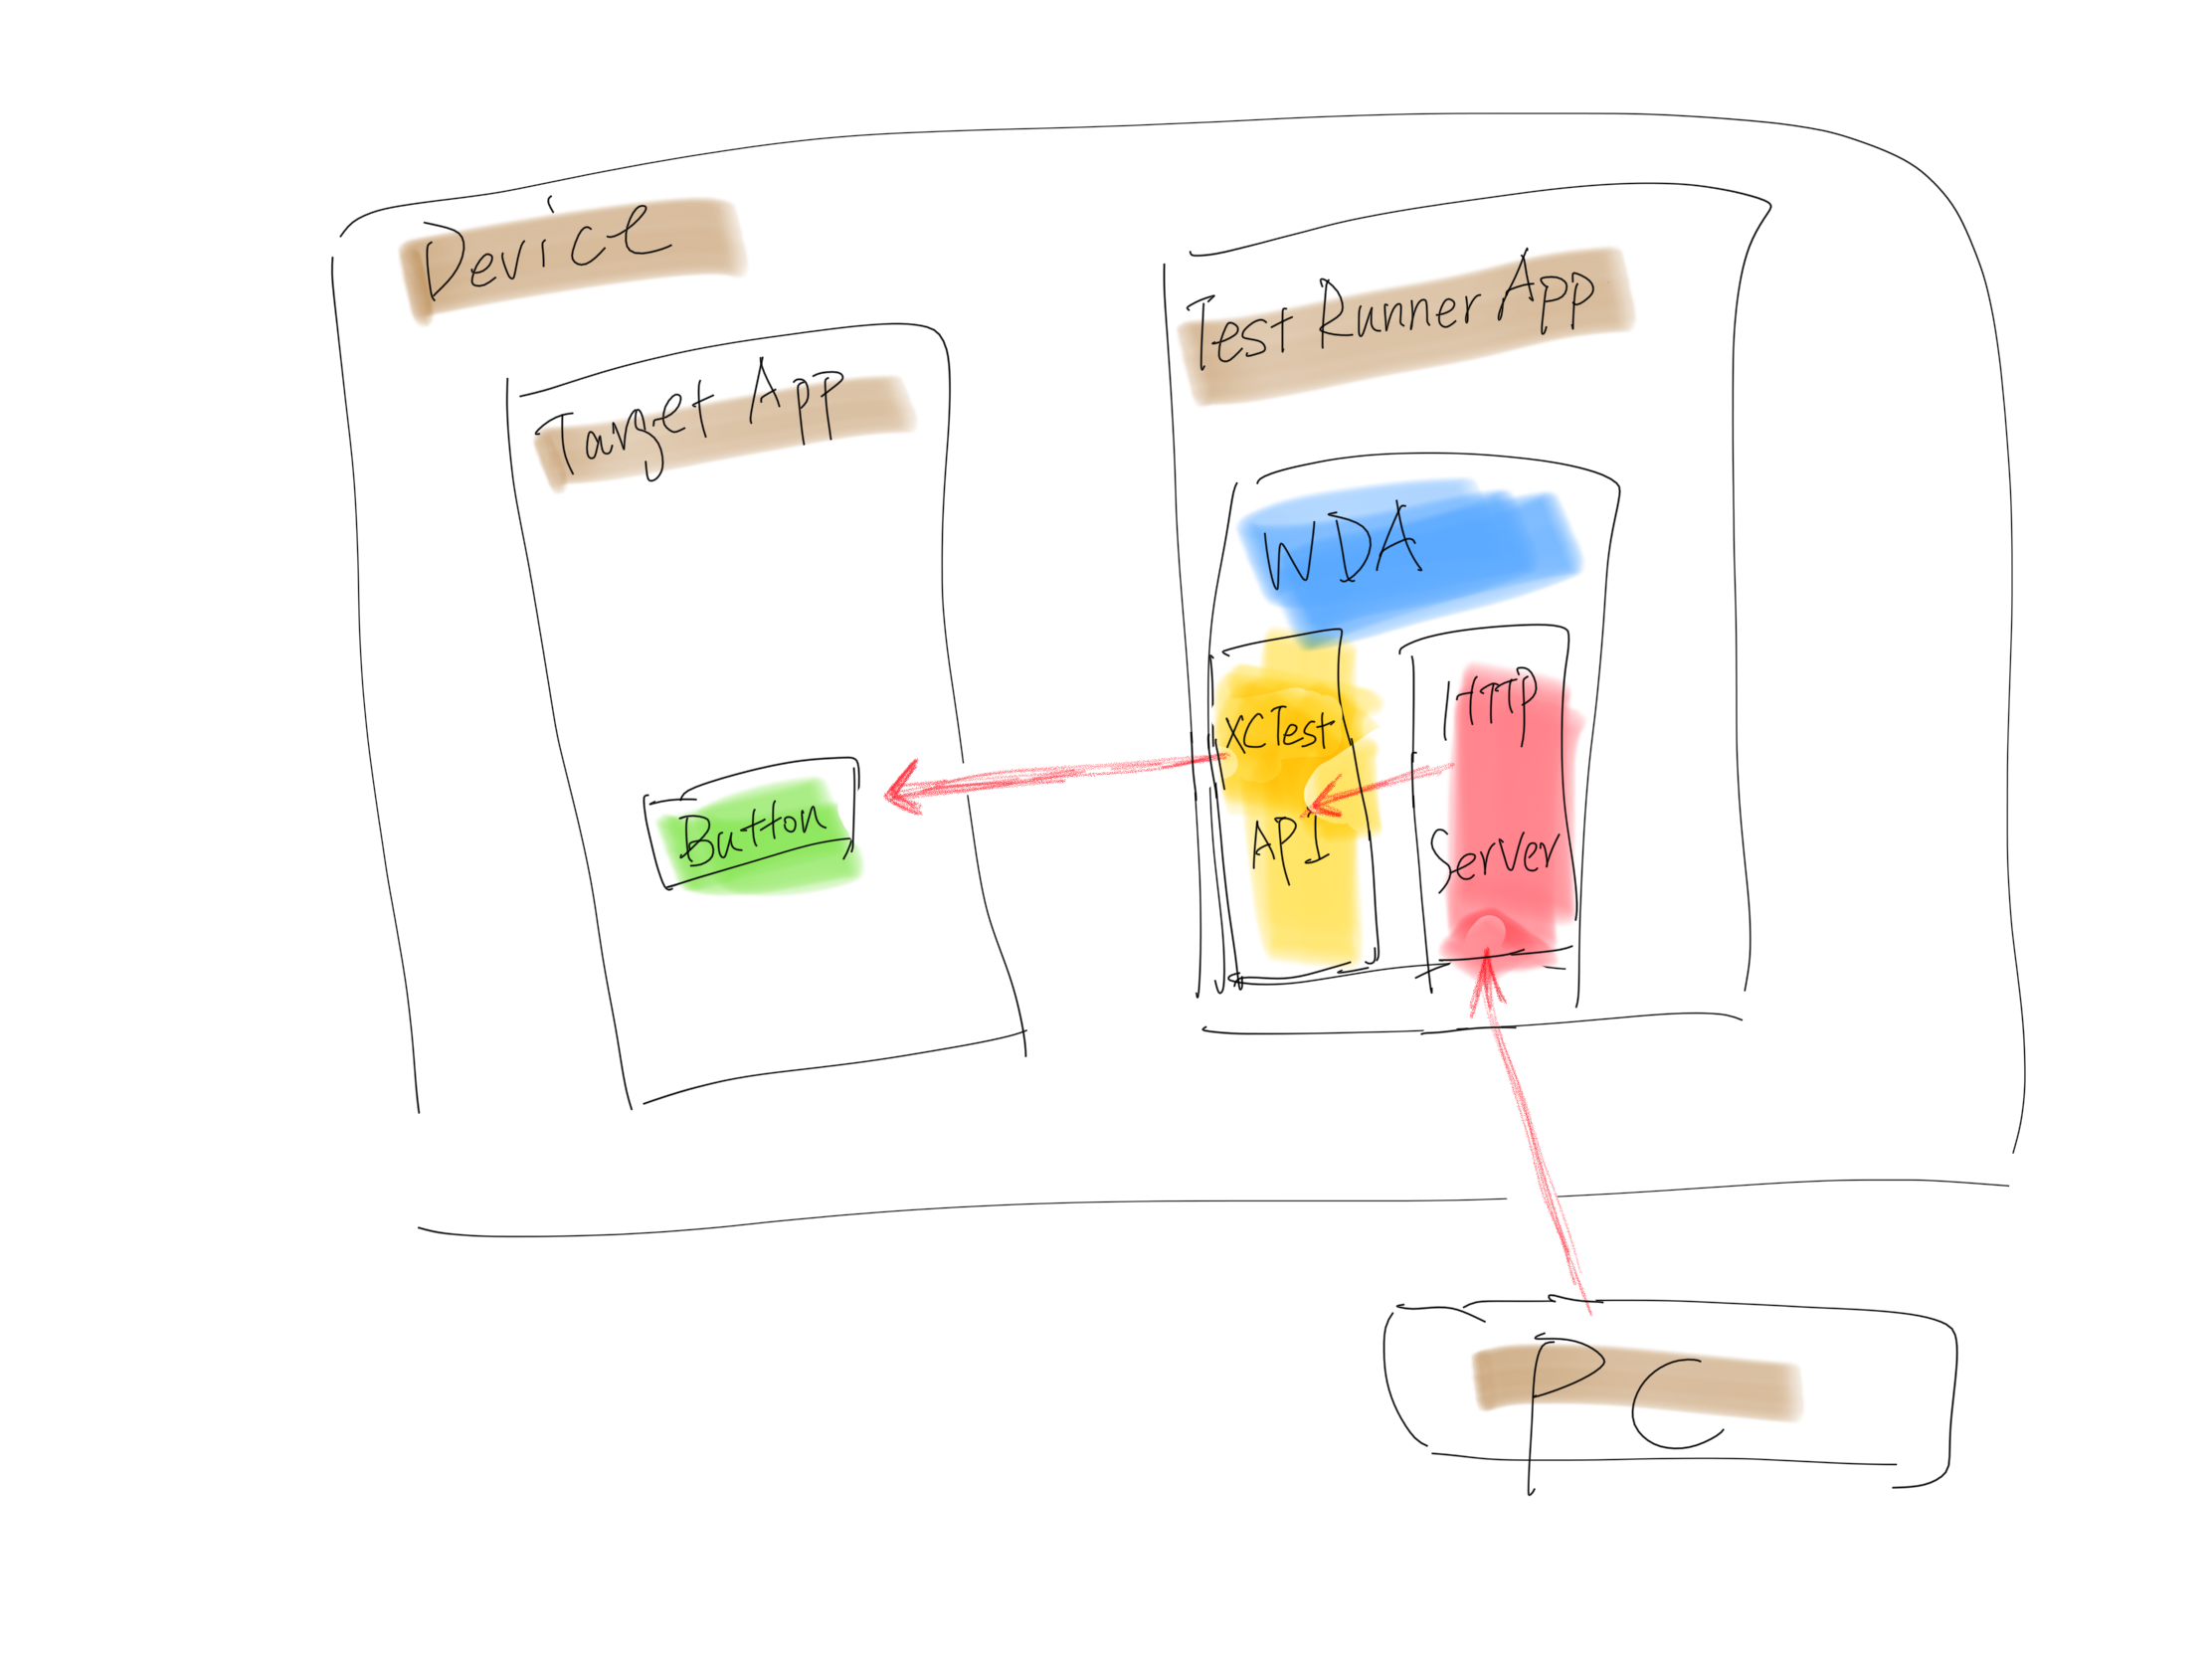 Device
Target App
Button
Test Runner App
WDA
XCTest
API
HTTP
Server
PC